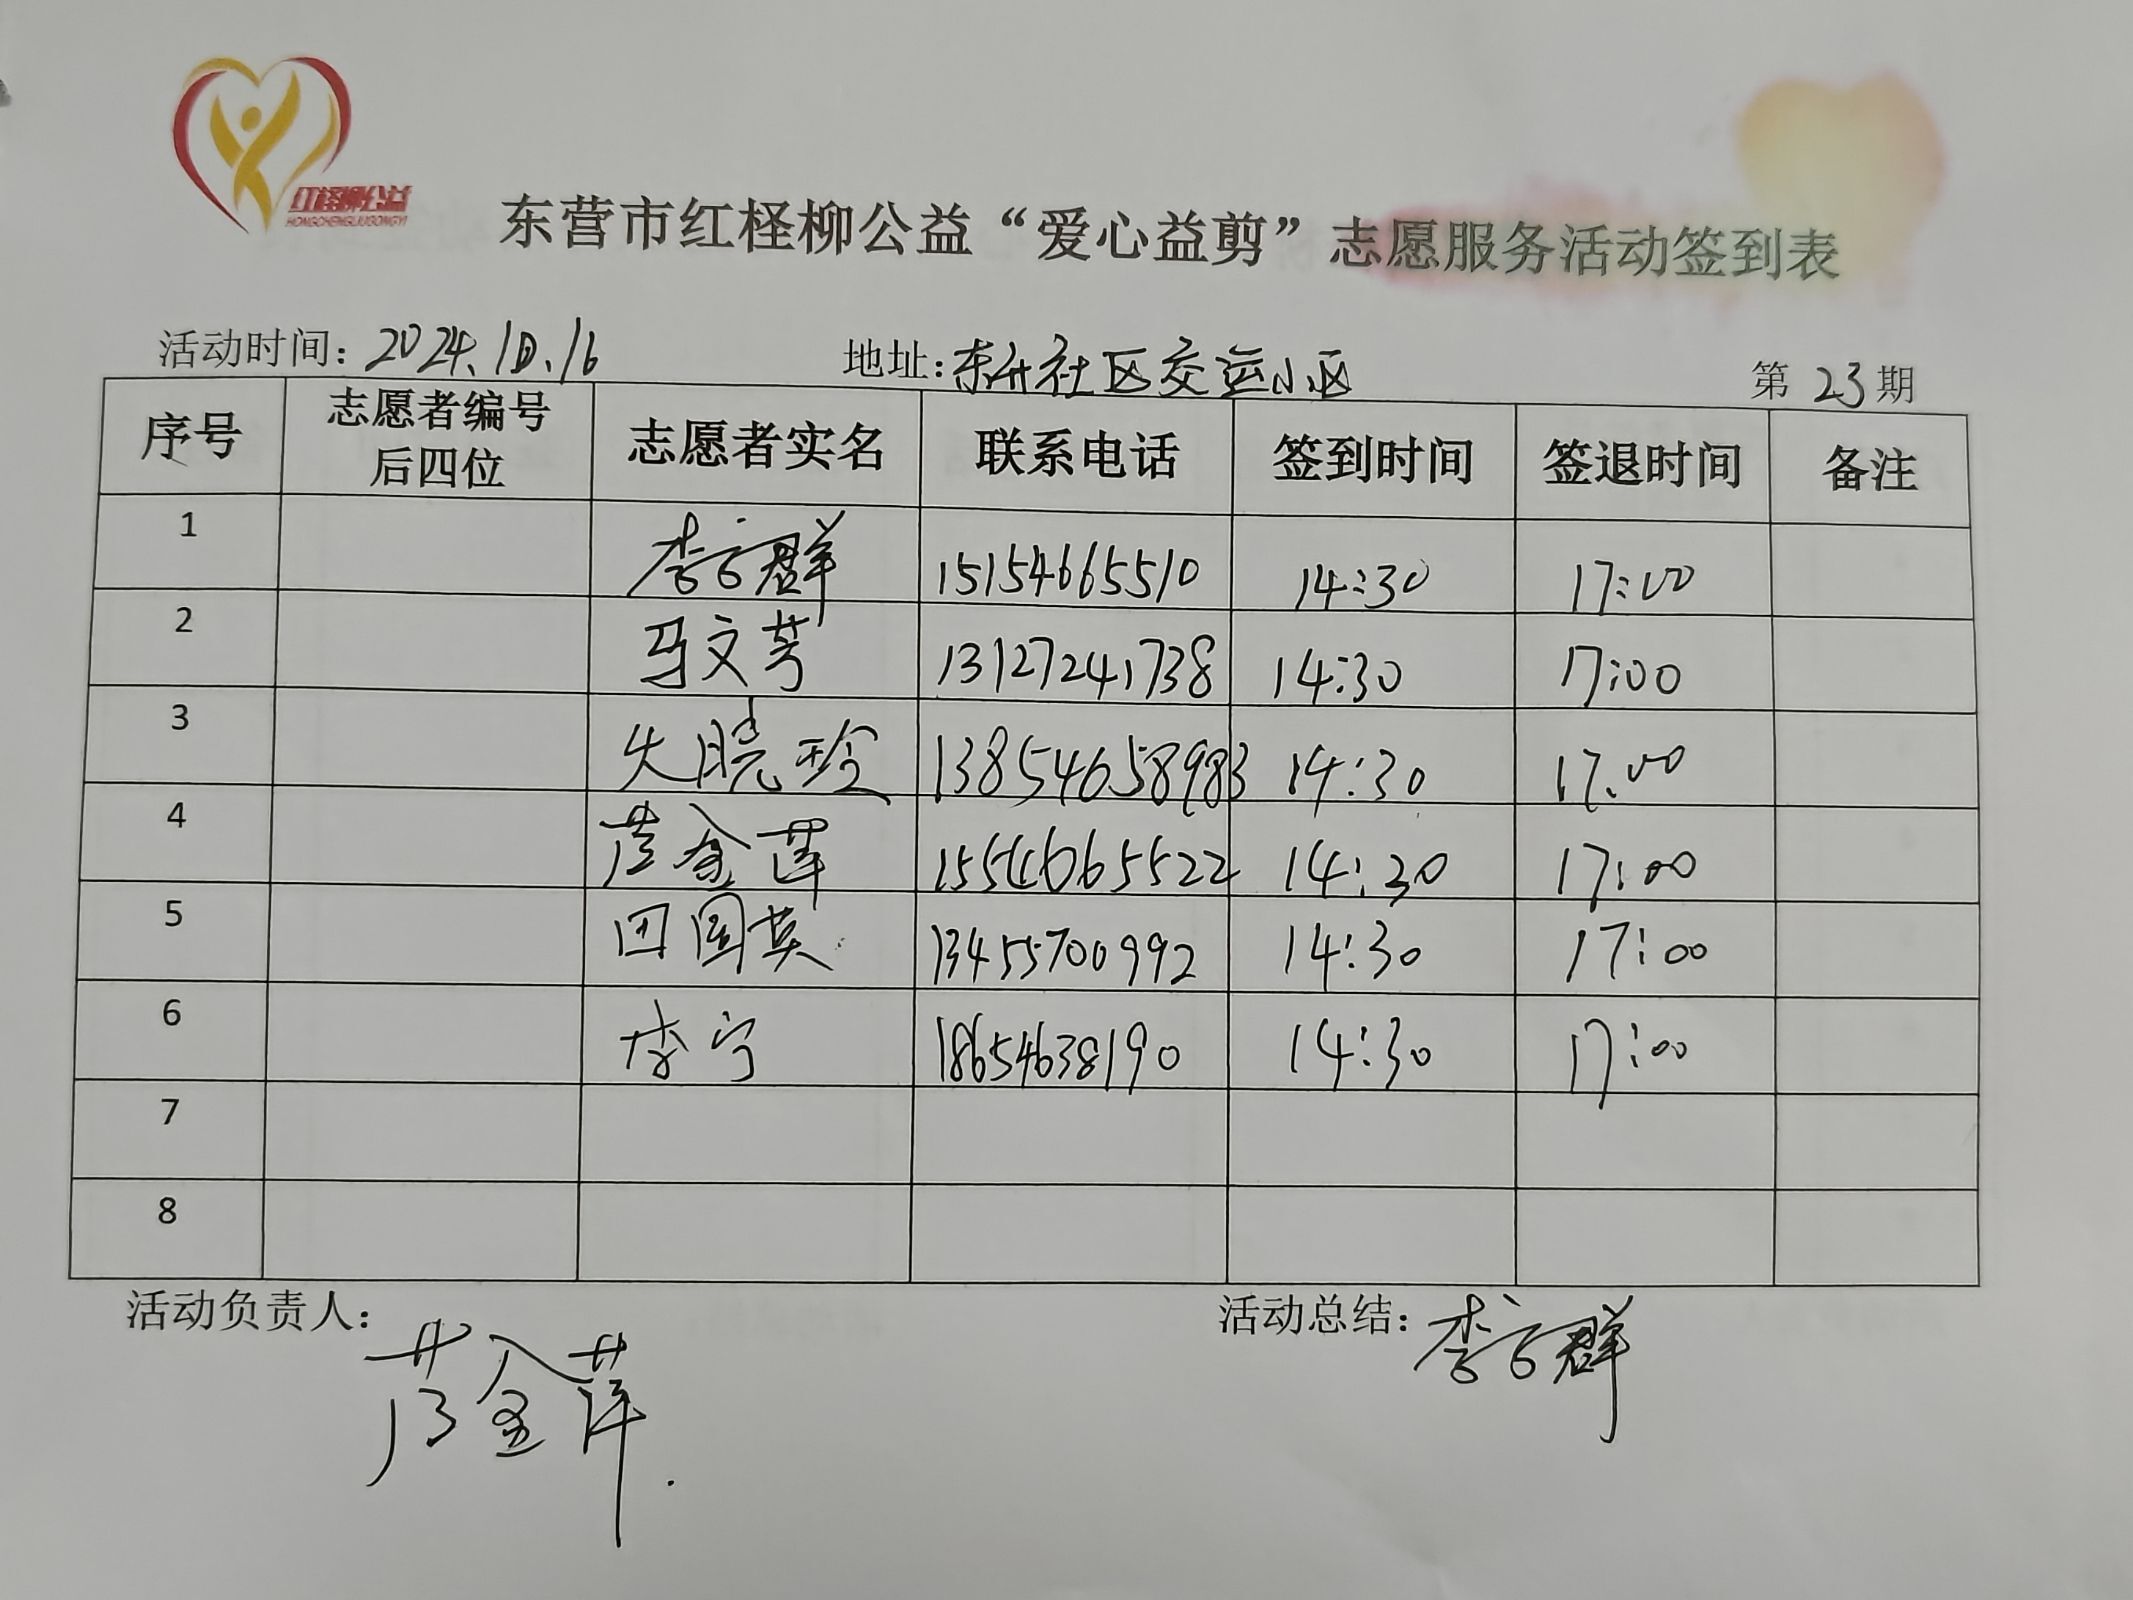 红柽柳公益
HONGCHENGLIUGONGYI
东营市红柽柳公益“爱心益剪”志愿服务活动签到表
活动时间：2024.10.16 地址：东升社区交运小区 第23期
序号 志愿者编号后四位 志愿者实名 联系电话 签到时间 签退时间 备注
1 李言群 15154665510 14:30 17:00
2 马文芳 13127241738 14:30 17:00
3 晓玲 13854658983 14:30 17:00
4 金莲 14:30 17:00
5 田国英 13455700992 14:30 17:00
6 李宁 18654638190 14:30 17:00
7
8
活动负责人： 金莲 活动总结：李言群